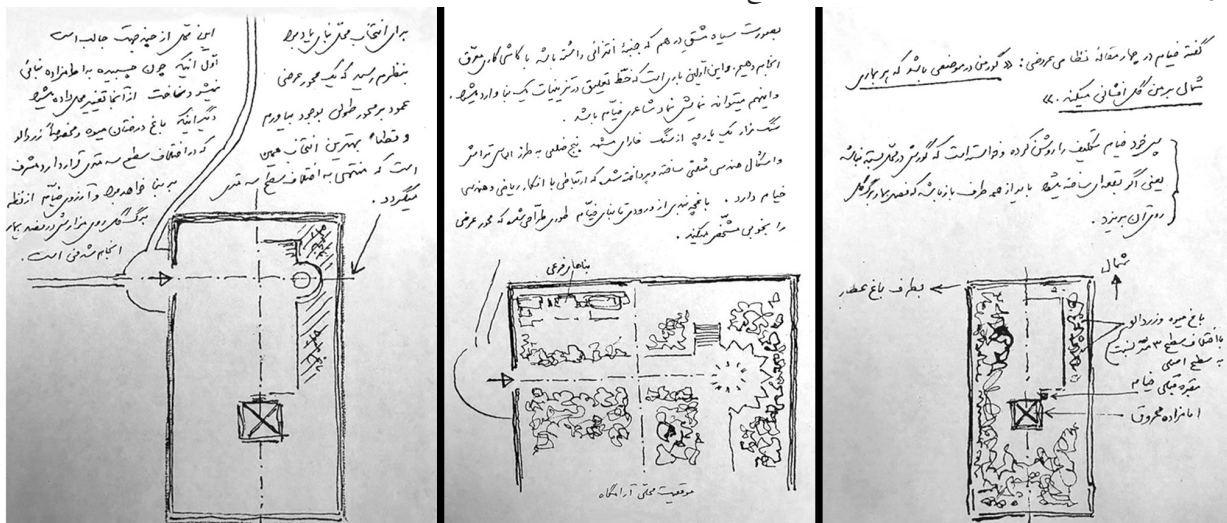 گفته خیام در چهار مقاله نظامی عروضی: «گور من در موضعی باشد که هر بهاری
شمالی بر من گل افشانی میکند.»
پس خود خیام تکلیف را روشن کرده و خواسته است که گورش در محلی بسته نباشد
یعنی اگر بقعه‌ای ساخته بشود باید از همه طرف باز باشد که فصل بهار برگ گل
روی آن بریزد.
شمال
بطرف باغ عطار
باغ میوه و زردآلو
با اختلاف سطح ۳ متر نسبت
به سطح اصلی
مقبره قبلی خیام
امامزاده محروق
بصورت سیاه مشق درهم که جنبه انتزاعی داشته باشد با کاشی کاری معرق
انجام دهیم. و این اولین باری است که خط تعلیق در تزئینات یک بنا وارد میشد.
و اینهم میتواند نمایش نماد شاعری خیام باشد.
سنگ مزار یک پارچه از سنگ خارای مشهد پنج ضلعی به طرز الماس تراش
و اشکال هندسی مثلثی ساخته و پرداخته شد که ارتباطی با افکار ریاضی و هندسی
خیام دارد. باغچه بندی از ورودی تا بنای خیام طوری طراحی شد که محور عرضی
را بخوبی مشخص میکند.
بناهای فرعی
موقعیت محلی آرامگاه
برای انتخاب محل بنای یادبود
بنظرم رسید که یک محور عرضی
عمود بر محور طولی بوجود بیاورم
و قطعاً بهترین انتخاب همین
است که منتهی به اختلاف سطح سه متری
میگردد.
این محل از چند جهت جالب است
اول آنکه چون چسبیده به امامزاده بنائی
نمیشد ساخت از آنجا تغییر محل داده میشد
دیگر آنکه باغ درختان میوه و مخصوصاً زردآلو
که در اختلاف سطح سه متری قرار دارد مشرف
به بنا خواهد بود و آرزوی خیام از نظر
برگ گل روی مزارش در فصل بهار
انجام شدنی است.